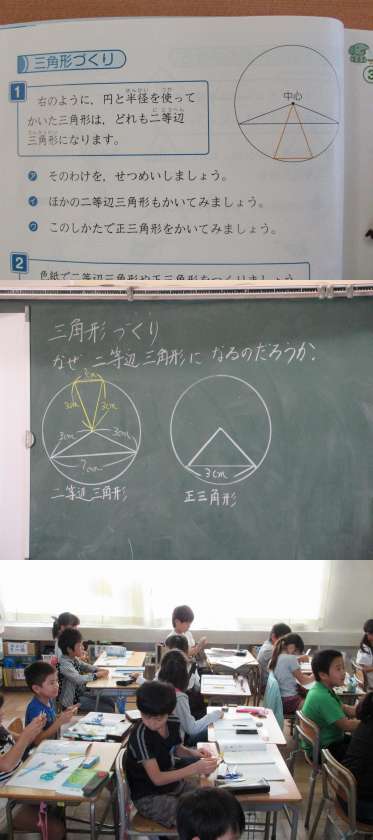 三角形づくり
1
右のように，円と半径を使って
かいた三角形は，どれも二等辺
三角形になります。
中心
㋐ そのわけを，せつめいしましょう。
㋑ ほかの二等辺三角形もかいてみましょう。
㋒ このしかたで正三角形をかいてみましょう。
2
色紙で二等辺三角形や正三角形をつくりましょう
三角形づくり
なぜ二等辺三角形になるのだろうか？
3cm 3cm
3cm 3cm
7cm
二等辺三角形
3cm
正三角形